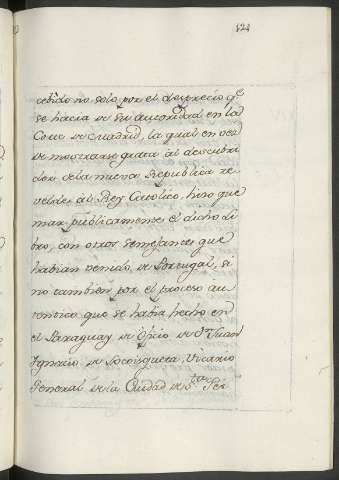 124
cebido no solo por el desprecio q.e
se hacia de su autoridad en la
Corte de Madrid, la qual en vez
de mostrarse grata al descubri
dor de la nueva Republica re
velde al Rey Catolico, hizo que
mar publicamente el dicho li
bro, con otros semejantes que
habian venido de Portugal, si
no tambien por el proceso au
tentico que se habia hecho en
el Paraguay de Oficio de D.n Juan
Ignacio de Gorostizqueta, Vicario
General de la Ciudad de S.ta Feé